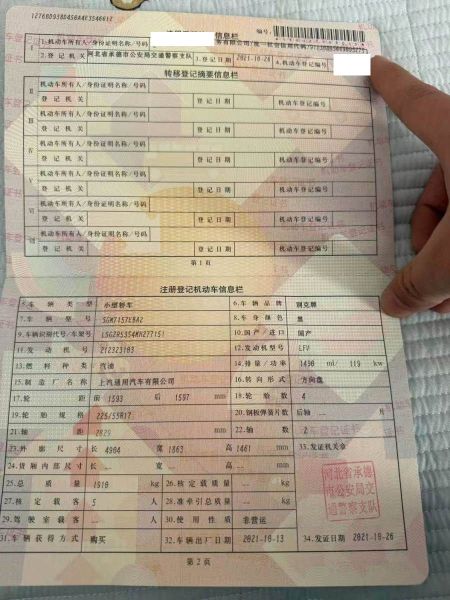 注册登记摘要信息栏
编号:
Ⅰ 1.机动车所有人/身份证明名称/号码
2.登记机关 河北省承德市公安局交通警察支队 3.登记日期 2021-10-26 4.机动车登记编号
转移登记摘要信息栏
Ⅱ 机动车所有人/身份证明名称/号码
登记机关 登记日期 机动车登记编号
Ⅲ 机动车所有人/身份证明名称/号码
登记机关 登记日期 机动车登记编号
Ⅳ 机动车所有人/身份证明名称/号码
登记机关 登记日期 机动车登记编号
Ⅴ 机动车所有人/身份证明名称/号码
登记机关 登记日期 机动车登记编号
Ⅵ 机动车所有人/身份证明名称/号码
登记机关 登记日期 机动车登记编号
Ⅶ 机动车所有人/身份证明名称/号码
登记机关 登记日期 机动车登记编号
第1页
注册登记机动车信息栏
5.车辆类型 小型轿车 6.车辆品牌 别克牌
7.车辆型号 8.车身颜色 黑
9.车辆识别代号/车架号 10.国产/进口 国产
11.发动机号 212323183 12.发动机型号 LFV
13.燃料种类 汽油 14.排量/功率 1490 ml/ 119 kw
15.制造厂名称 上汽通用汽车有限公司 16.转向形式 方向盘
17.轮距 前 1593 后 1597 mm 18.轮胎数 4
19.轮胎规格 225/55R17 20.钢板弹簧片数 后轴 -- 片
21.轴距 2829 mm 22.轴数 2
23.外廓尺寸 长 4904 宽 1863 高 1461 mm 33.发证机关章
24.货厢内部尺寸 长 -- 宽 -- 高 -- mm
25.总质量 1910 kg 26.核定载质量 -- kg
27.核定载客 5 人 28.准牵引总质量 -- kg
29.驾驶室载客 -- 人 30.使用性质 非营运
河北省承德
市公安局交
通警察支队
31.车辆获得方式 购买 32.车辆出厂日期 2021-10-13 34.发证日期 2021-10-26
第2页